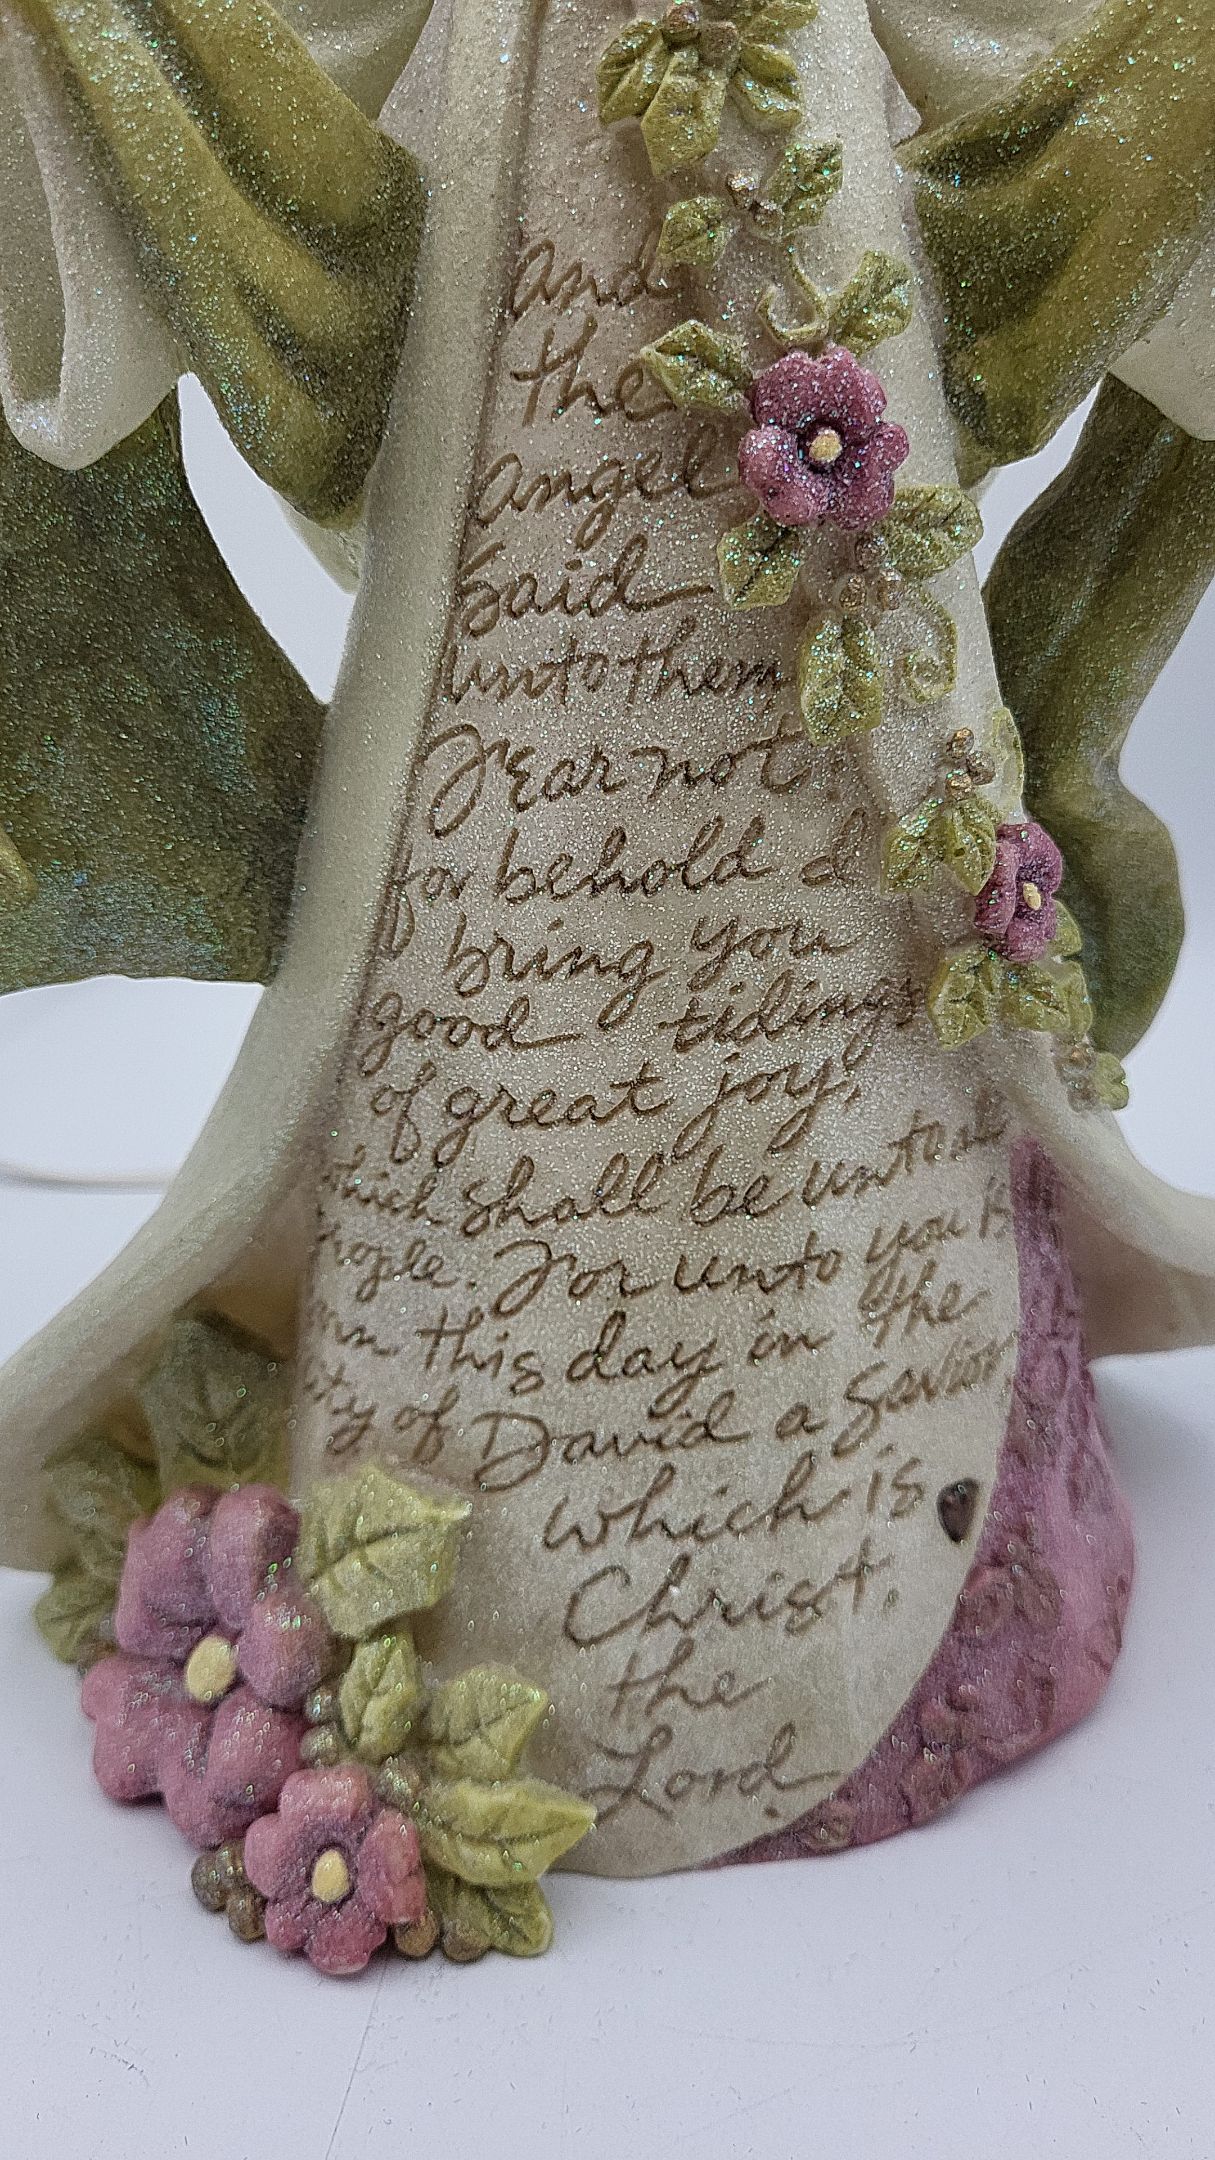 and
the
angel
Said
unto them
Fear not
for behold I
bring you
good tidings
of great joy,
which shall be unto all
people. For unto you is
born this day in the
city of David a Savior
which is
Christ,
the
Lord.